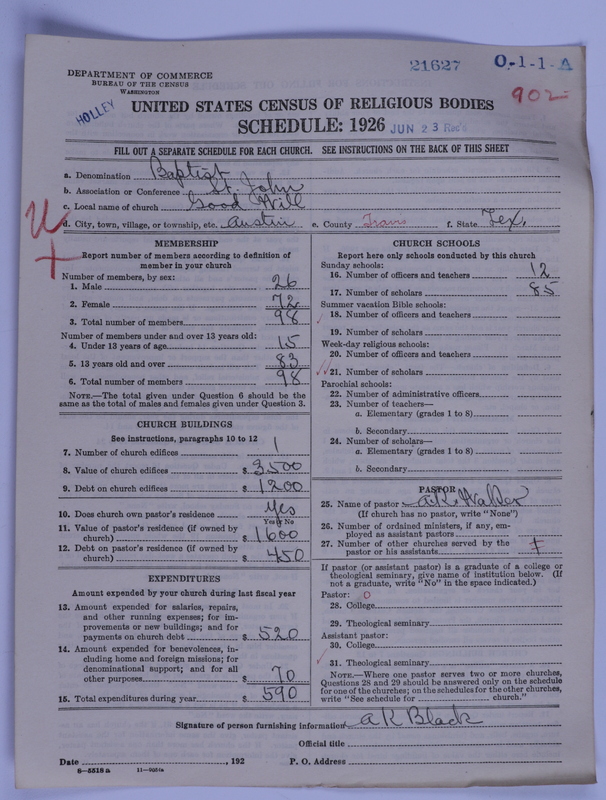 21627 O-1-1-A
DEPARTMENT OF COMMERCE
BUREAU OF THE CENSUS
WASHINGTON
902
HOLLEY
UNITED STATES CENSUS OF RELIGIOUS BODIES
SCHEDULE: 1926 JUN 23 Rec'd
FILL OUT A SEPARATE SCHEDULE FOR EACH CHURCH. SEE INSTRUCTIONS ON THE BACK OF THIS SHEET
a. Denomination Baptist
b. Association or Conference St. John
c. Local name of church Good Will
d. City, town, village, or township, etc. Austin e. County Travis f. State Tex.
MEMBERSHIP
Report number of members according to definition of
member in your church
Number of members, by sex:
1. Male 26
2. Female 72
3. Total number of members 98
Number of members under and over 13 years old:
4. Under 13 years of age 15
5. 13 years old and over 83
6. Total number of members 98
NOTE.—The total given under Question 6 should be the
same as the total of males and females given under Question 3.
CHURCH BUILDINGS
See instructions, paragraphs 10 to 12
7. Number of church edifices 1
8. Value of church edifices $ 3500
9. Debt on church edifices $ 1200
10. Does church own pastor's residence Yes
Yes or No
11. Value of pastor's residence (if owned by
church) $ 1600
12. Debt on pastor's residence (if owned by
church) $ 450
EXPENDITURES
Amount expended by your church during last fiscal year
13. Amount expended for salaries, repairs,
and other running expenses; for im-
provements or new buildings; and for
payments on church debt $ 520
14. Amount expended for benevolences, in-
cluding home and foreign missions; for
denominational support; and for all
other purposes $ 70
15. Total expenditures during year $ 590
CHURCH SCHOOLS
Report here only schools conducted by this church
Sunday schools:
16. Number of officers and teachers 12
17. Number of scholars 85
Summer vacation Bible schools:
18. Number of officers and teachers
19. Number of scholars
Week-day religious schools:
20. Number of officers and teachers
21. Number of scholars
Parochial schools:
22. Number of administrative officers
23. Number of teachers—
a. Elementary (grades 1 to 8)
b. Secondary
24. Number of scholars—
a. Elementary (grades 1 to 8)
b. Secondary
PASTOR
25. Name of pastor A.K. Walder
(If church has no pastor, write "None")
26. Number of ordained ministers, if any, em-
ployed as assistant pastors
27. Number of other churches served by the
pastor or his assistants
If pastor (or assistant pastor) is a graduate of a college or
theological seminary, give name of institution below. (If
not a graduate, write "No" in the space indicated.)
Pastor: 0
28. College
29. Theological seminary
Assistant pastor:
30. College
31. Theological seminary
NOTE.—Where one pastor serves two or more churches,
Questions 28 and 29 should be answered only on the schedule
for one of the churches; on the schedules for the other churches,
write "See schedule for church."
Signature of person furnishing information A K Black
Official title
Date , 192 P. O. Address
8-5518a 11-9051a